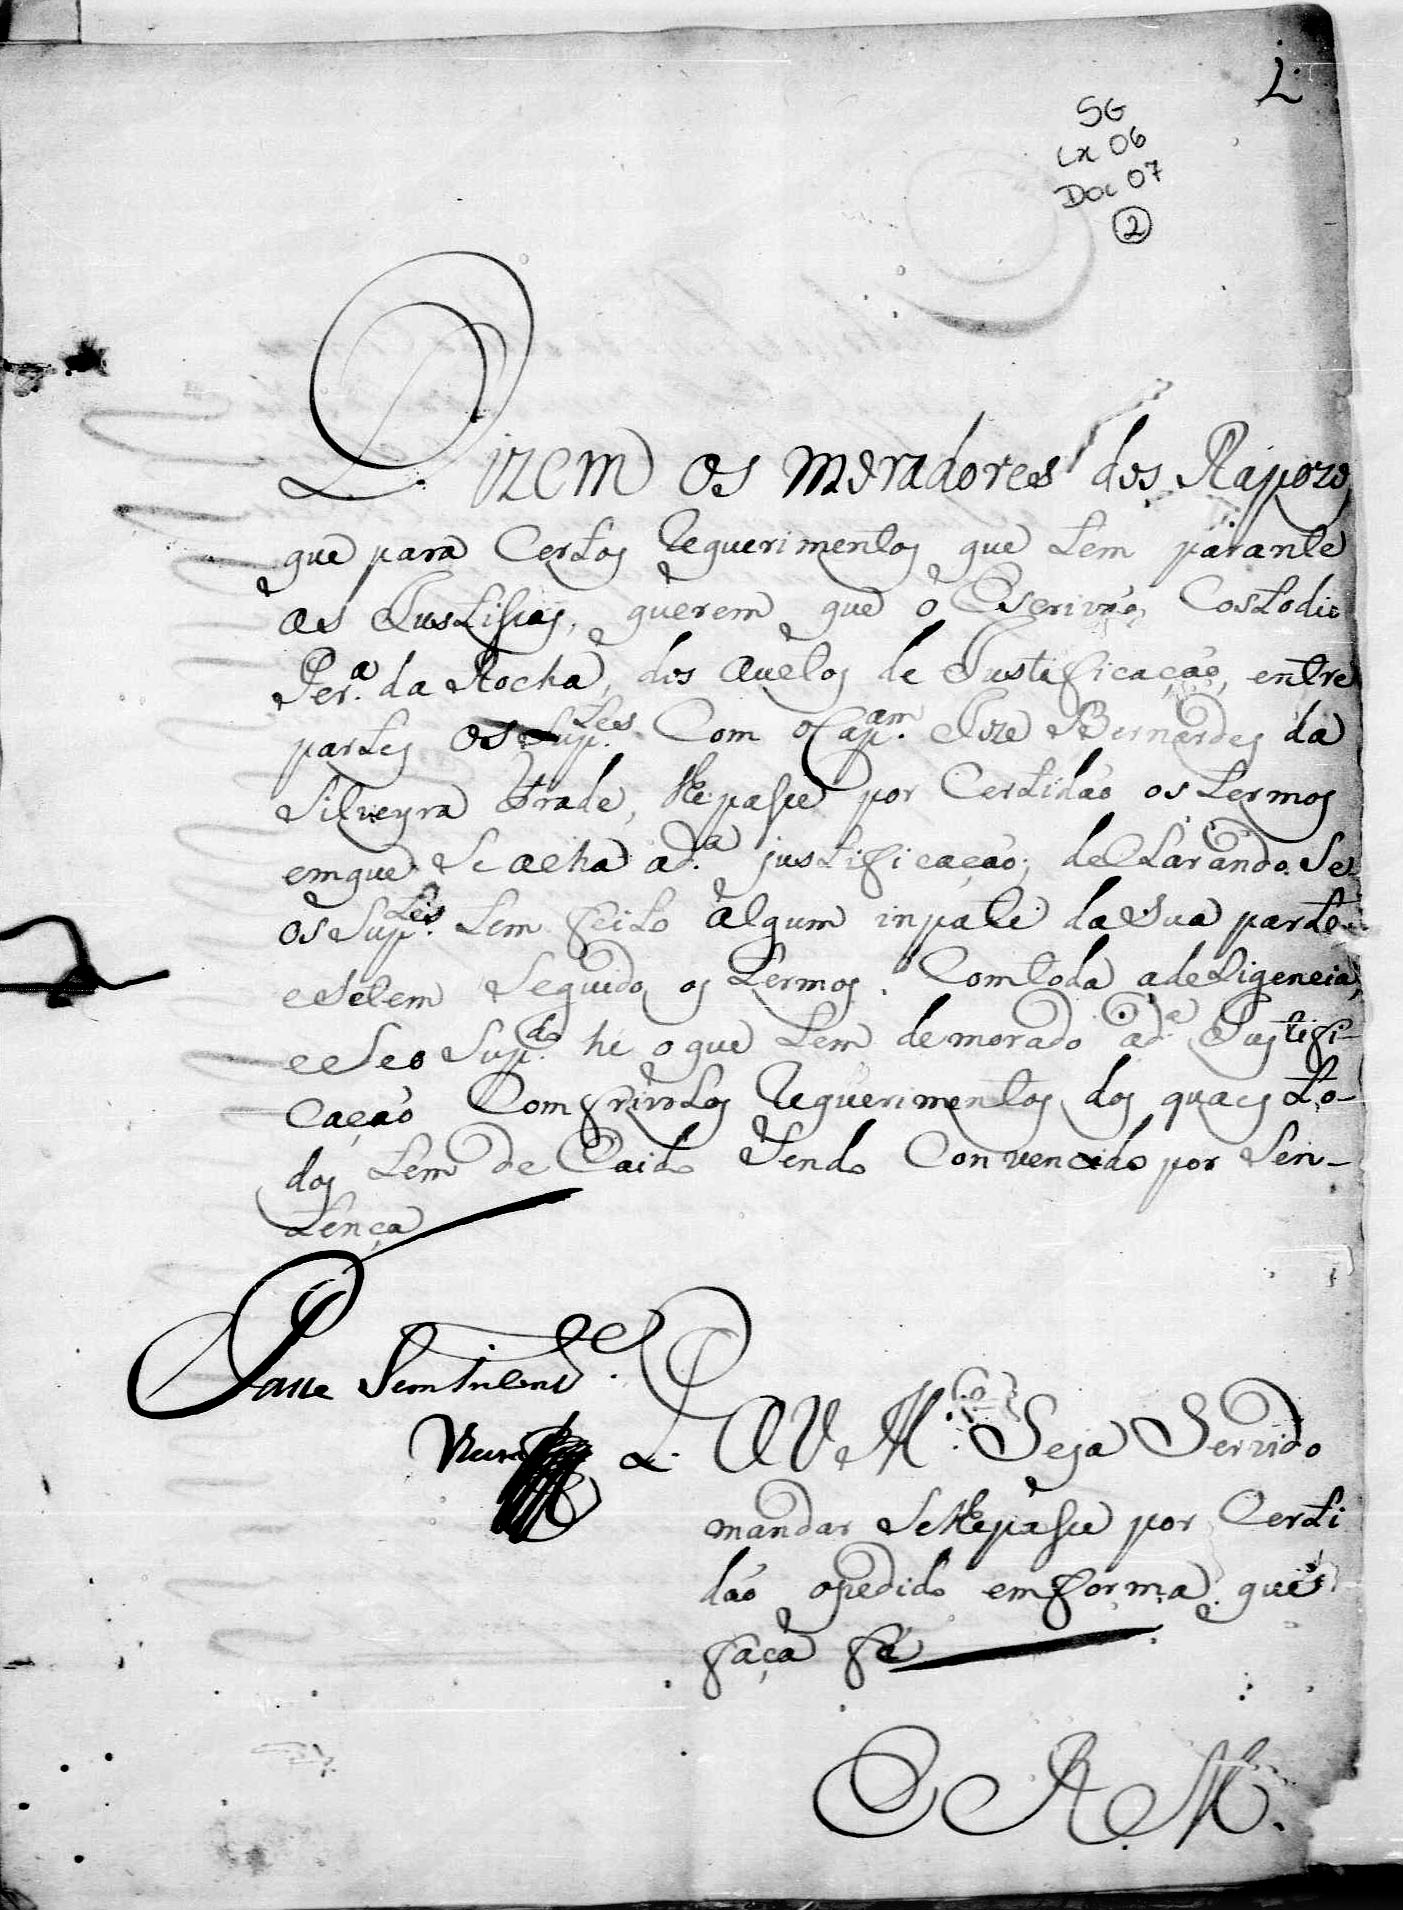 L.
SG
Cx 06
Doc 07
2
Dizem os moradores dos Rapozos
que para Certos Requerimentos que tem parante
as Justissas, querem que o Escrivão Costodio
Per.ª da Rocha, dos Auctos de Justificação, entre
partes os Sup.tes Com o Cap.am Joze Bernardes da
Silveyra Frade, lhe passe por Certidão os termos
em que Se acha a d.ª justificação; declarando Se
os Sup.tes tem feito algum inpate da Sua parte
e Se tem Seguido os termos, Com toda a deligencia,
e Se o Sup.do hé o que tem demorado a d.ª Justifi-
cação Com frivolos Requerimentos dos quaes to-
dos tem de Caido Sendo Convencido por Sen-
tença
Passe Sem inconv.e
P. A V M.ce Seja Servido
mandar Se lhe passe por Certi
dão o pedido em forma que
faça fé
E R. M.